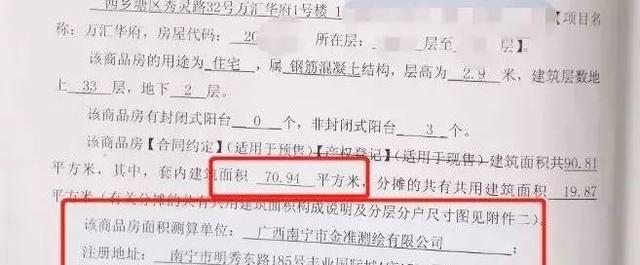 西乡塘区秀灵路32号万汇华府1号楼 1 【项目名
称：万汇华府，房屋代码：20 所在层： 层至 层】
该商品房的用途为 住宅 ，属 钢筋混凝土结构，层高为 2.9 米，建筑层数地
上 33 层，地下 2 层。
该商品房有封闭式阳台 0 个，非封闭式阳台 3 个。
该商品房【合同约定】(适用于预售)【产权登记】(适用于现售)建筑面积共90.81
平方米，其中，套内建筑面积 70.94 平方米，分摊的共有共用建筑面积 19.87
平方米（有关分摊的共有共用建筑面积构成说明及分层分户尺寸图见附件二）。
该商品房面积测算单位： 广西南宁市金准测绘有限公司 ；
注册地址： 南宁市明秀东路185号丰业国际城